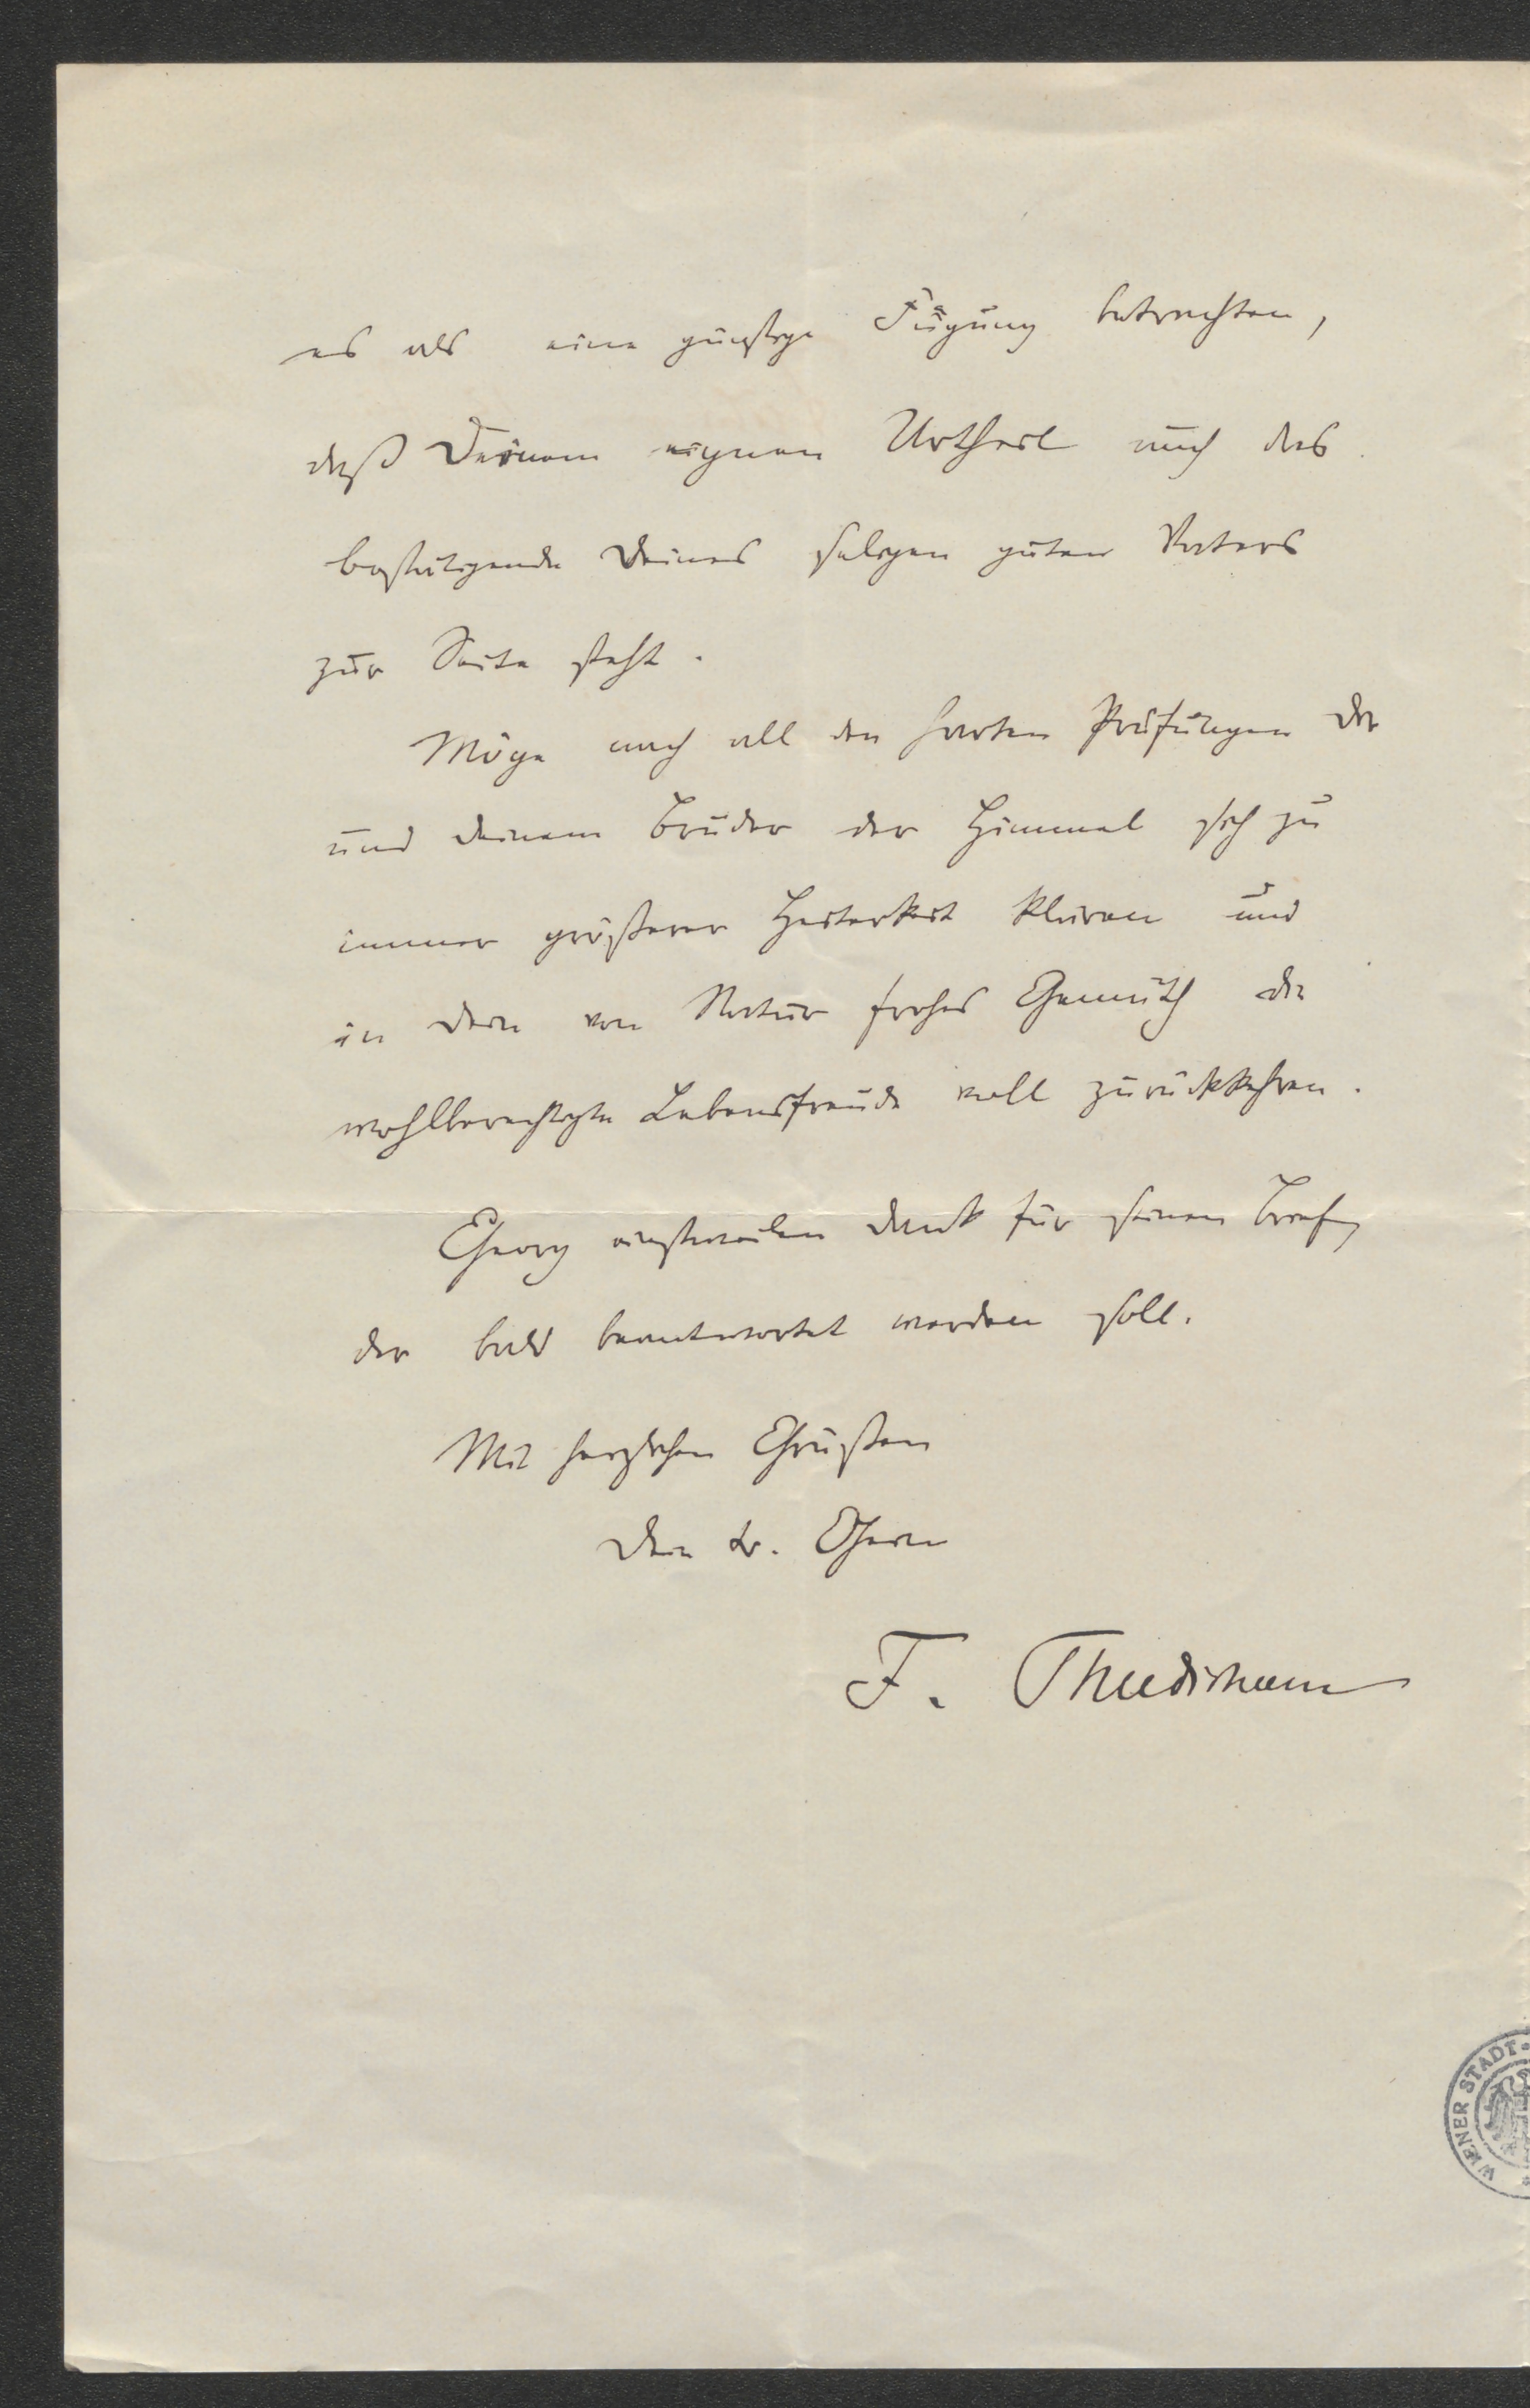 es als eine günstige Fügung betrachten,
daß Deinem eignen Urtheil auch das
bestätigende Deines seligen guten Vaters
zur Seite steht.
Möge nach all den harten Prüfungen Dir
und Deinem Bruder der Himmel sich zu
immer größerer Heiterkeit klären und
in Dein von Natur frohes Gemüth die
wohlberechtigte Lebensfreude voll zurückkehren.
Georg einstweilen Dank für seinen Brief,
der bald beantwortet werden soll.
Mit herzlichen Grüßen
Dein tr. Oheim
F. Thiedemann
WIENER STADT-